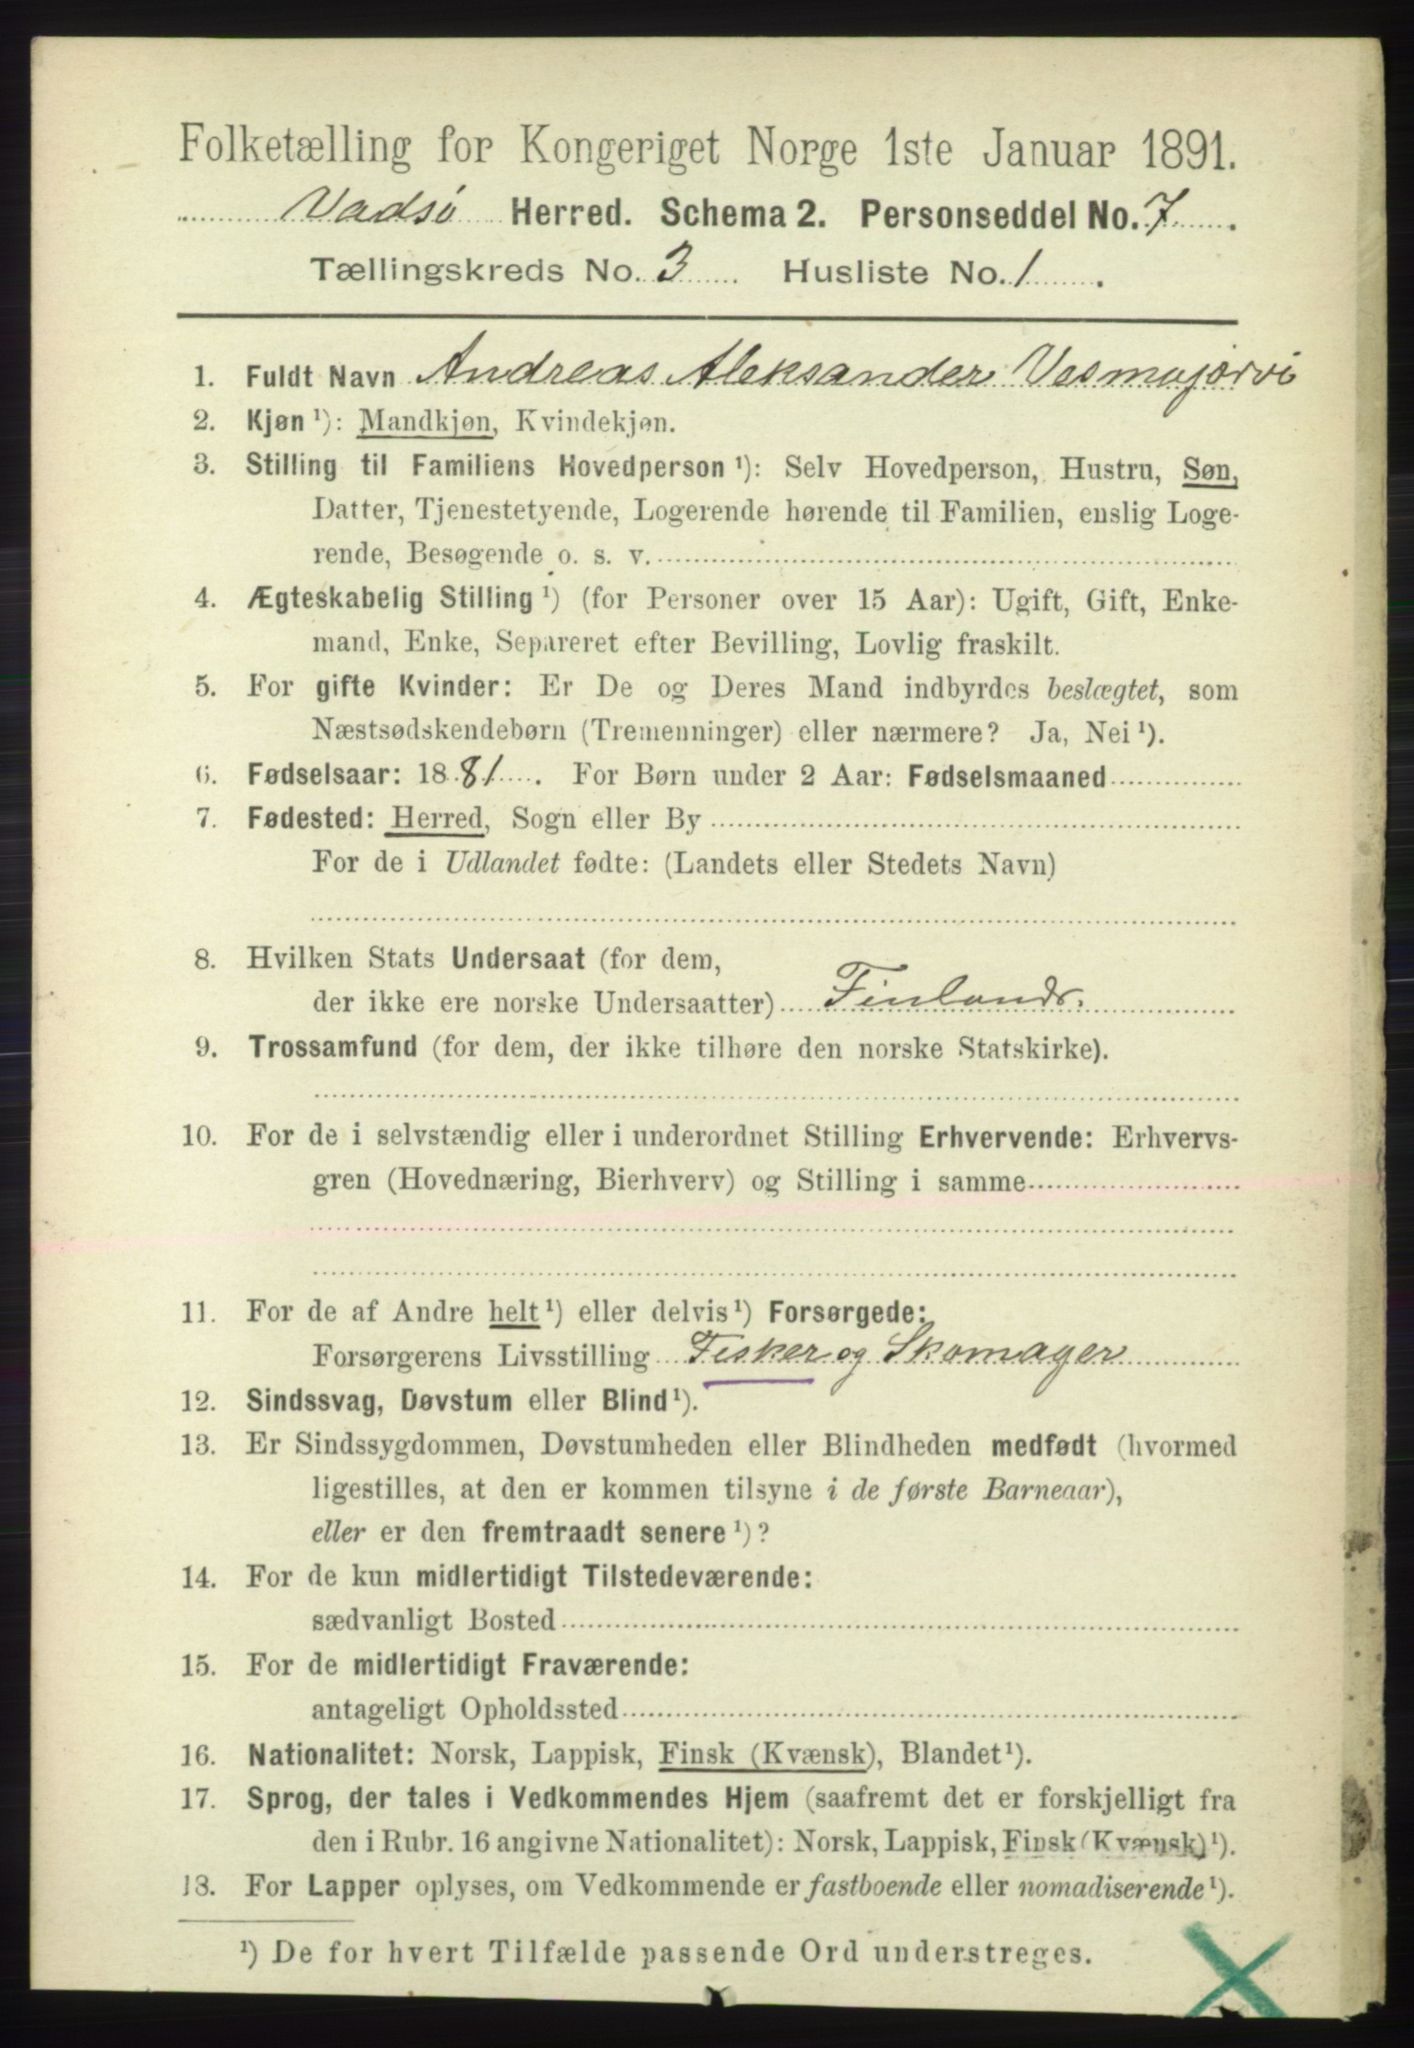 Folketælling for Kongeriget Norge 1ste Januar 1891.
Vadsø Herred. Schema 2. Personseddel No. 7.
Tællingskreds No. 3 Husliste No. 1.
1. Fuldt Navn Andreas Aleksander Vesmajærvi
2. Kjøn ¹): Mandkjøn, Kvindekjøn.
3. Stilling til Familiens Hovedperson ¹): Selv Hovedperson, Hustru, Søn,
Datter, Tjenestetyende, Logerende hørende til Familien, enslig Loge-
rende, Besøgende o. s. v.
4. Ægteskabelig Stilling ¹) (for Personer over 15 Aar): Ugift, Gift, Enke-
mand, Enke, Separeret efter Bevilling, Lovlig fraskilt.
5. For gifte Kvinder: Er De og Deres Mand indbyrdes beslægtet, som
Næstsødskendebørn (Tremenninger) eller nærmere? Ja, Nei ¹).
6. Fødselsaar: 1881. For Børn under 2 Aar: Fødselsmaaned
7. Fødested: Herred, Sogn eller By
For de i Udlandet fødte: (Landets eller Stedets Navn)
8. Hvilken Stats Undersaat (for dem,
der ikke ere norske Undersaatter) Finlands.
9. Trossamfund (for dem, der ikke tilhøre den norske Statskirke).
10. For de i selvstændig eller i underordnet Stilling Erhvervende: Erhvervs-
gren (Hovednæring, Bierhverv) og Stilling i samme
11. For de af Andre helt ¹) eller delvis ¹) Forsørgede:
Forsørgerens Livsstilling Fisker og Skomager
12. Sindssvag, Døvstum eller Blind ¹).
13. Er Sindssygdommen, Døvstumheden eller Blindheden medfødt (hvormed
ligestilles, at den er kommen tilsyne i de første Barneaar),
eller er den fremtraadt senere ¹)?
14. For de kun midlertidigt Tilstedeværende:
sædvanligt Bosted
15. For de midlertidigt Fraværende:
antageligt Opholdssted
16. Nationalitet: Norsk, Lappisk, Finsk (Kvænsk), Blandet ¹).
17. Sprog, der tales i Vedkommendes Hjem (saafremt det er forskjelligt fra
den i Rubr. 16 angivne Nationalitet): Norsk, Lappisk, Finsk (Kvænsk) ¹).
18. For Lapper oplyses, om Vedkommende er fastboende eller nomadiserende ¹).
¹) De for hvert Tilfælde passende Ord understreges.